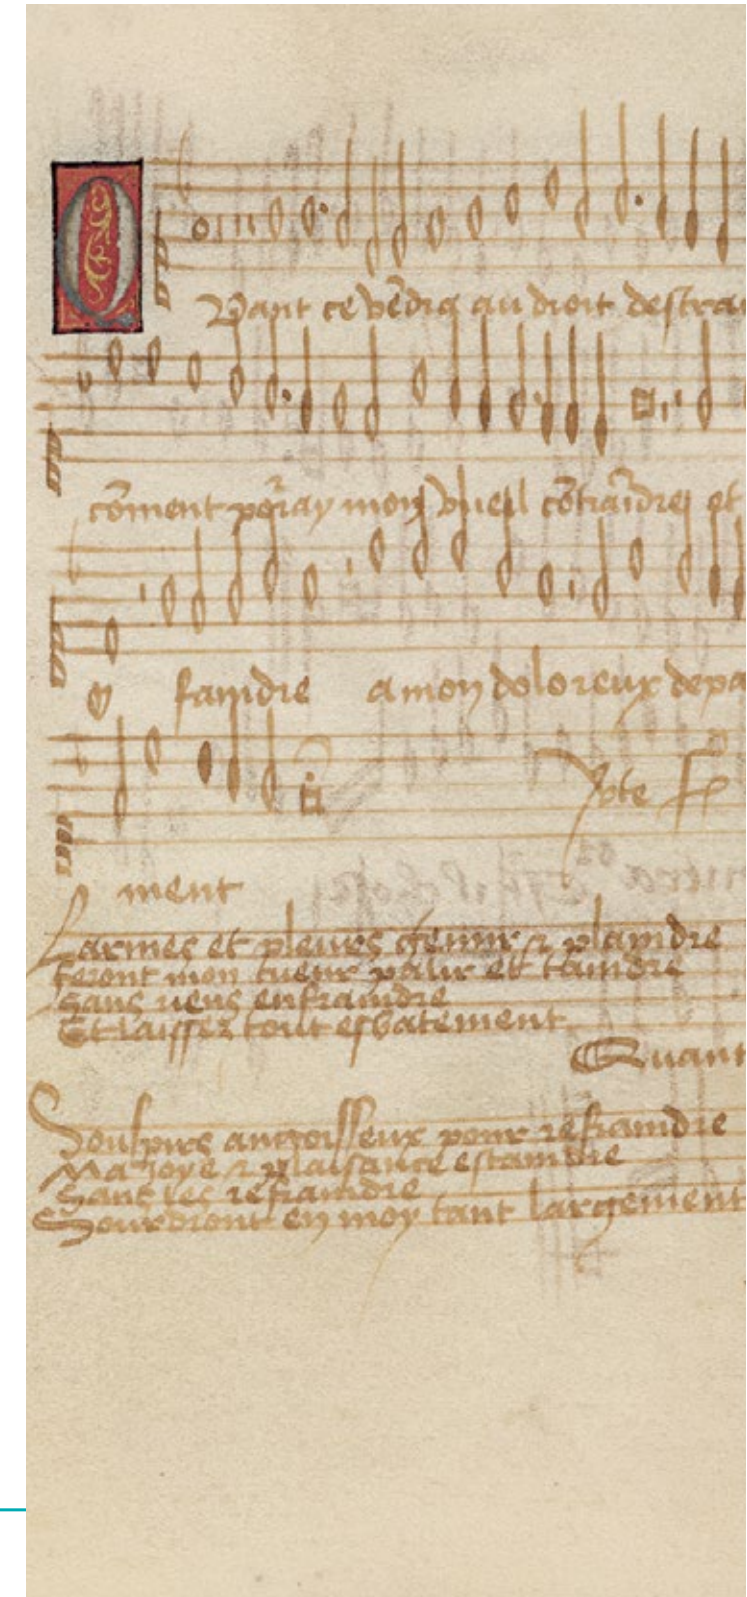 Quant ce vēdra au droit destrai
cōment porray mon vueil cōtraīdre et
faindre a mon doloreux depa
ment
Larmes et pleurs gemir & plaindre
feront mon cueur palir et taindre
Sans riens enfraindre
Et laissez tout esbatement
Quant
Souspirs angoisseux pour refraindre
Ma joye & plaisance estaindre
Sans les refraindre
Sourdront en moy tant largement